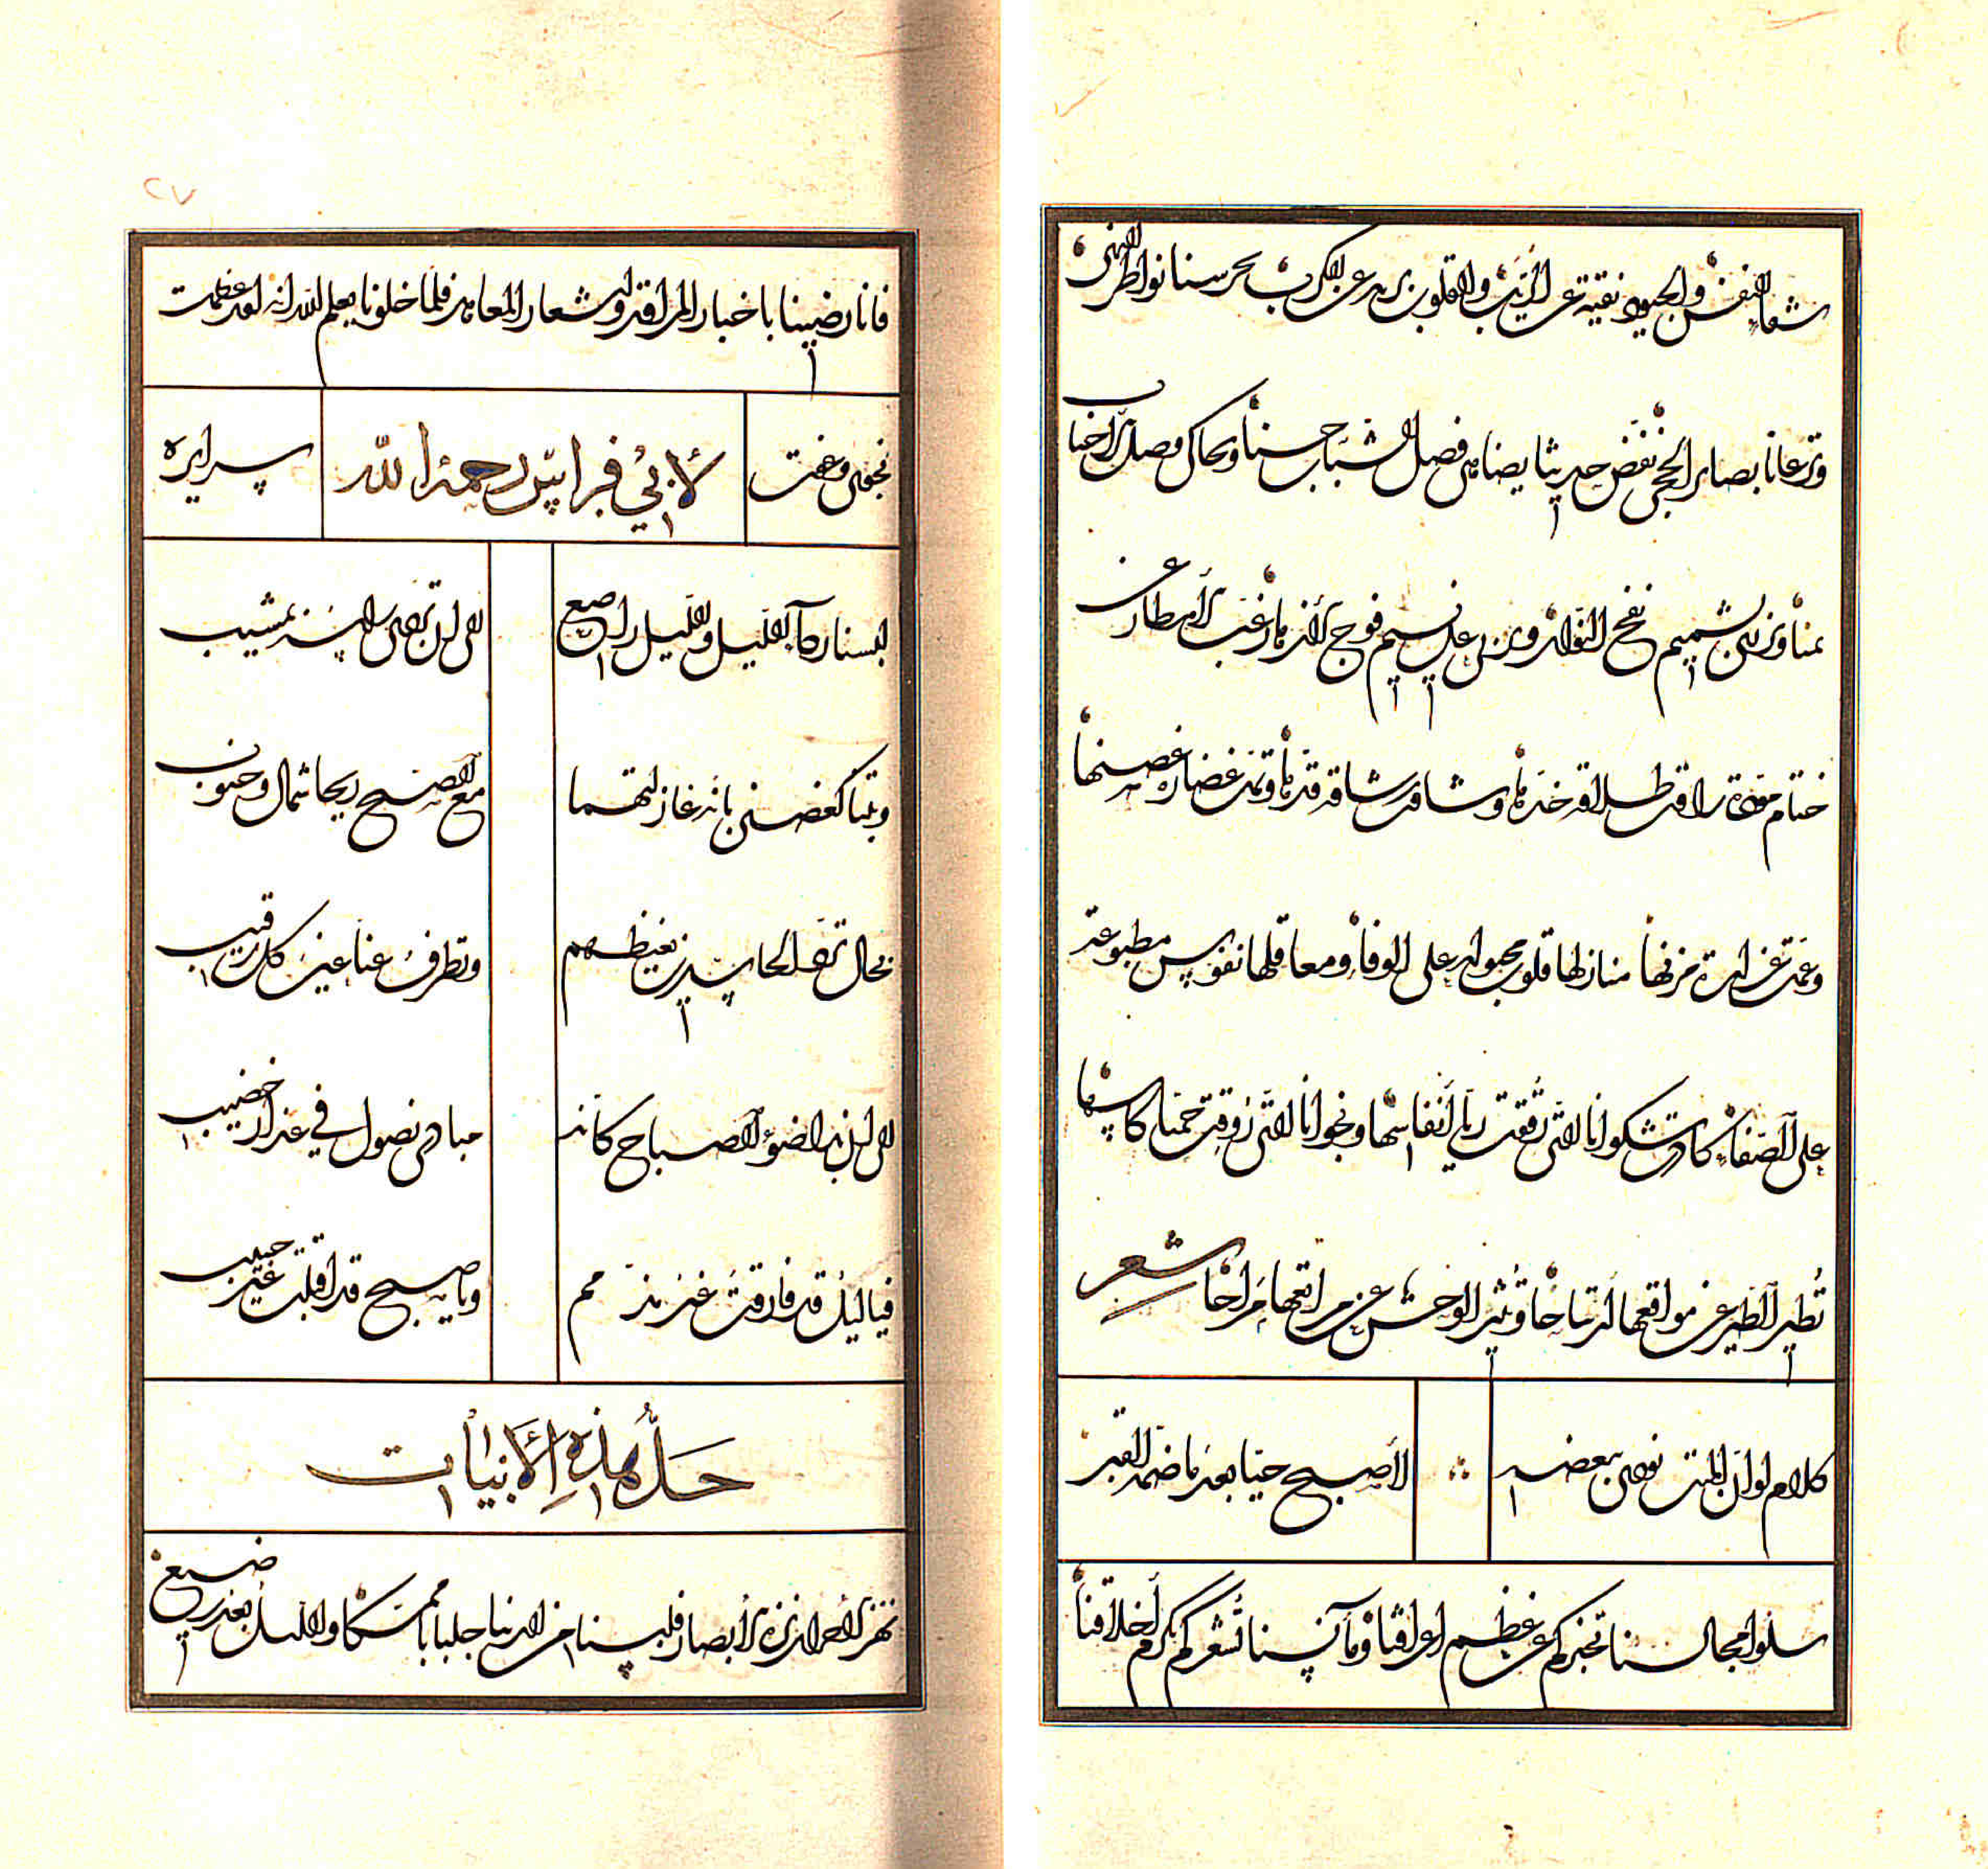 شفاء النفس والجيوب نقية عن الريب والقلوب بريه عن الكرب تحرسنا نواظر النهى
وترعانا بصاير الحجى نفض حديثا يضاهى فصل الشباب حسنا ويحاكى وصل الاحباب
يمنا ويزرى بشميم نفح النوار ويزرى على نسيم فوح الازهار غب الامطار عن
ختام مودة راقت طلاقة خدها وشاقت رشاقة قدها وتمت غضارة غصنها
وعمت غزارة مزنها منازلها قلوب مجبولة على الوفاء ومعاقلها نفوس مطبوعة
على الصفاء كادت شكوانا التى رققت ريا أنفاسها ونجوانا التى روقت حميا كاسها
تطير الطير عن مواقعها ارتياحا وتثير الوحش عن مراتعها مراحا شعر
كلام لو ان الميت نوجى ببعضه لأصبح حيا بعد ما ضمه القبر
سلوا مجالسنا تخبركم عن عظم اعراقنا ومآنسنا تشعركم بكرم أخلاقنا
٢٧
فانا رضينا باخبار المراقد واشعار المعاهد فلما خلونا يعلم الله انه لقد عظمت
نجوى وعفت لأبي فراس رحمه الله سرايره
لبسنا ردآء الليل والليل راضع الى ان تردى رأسه بمشيب
وبتنا كغصنى بانة غازلتهما مع الصبح ريحا شمال وجنوب
بحال ترد الحاسدين بغيظهم وتطرف عنا عين كل رقيب
الى ان بدا ضوء الصباح كانه مبادى نصول في عذار خضيب
فيا ليل قد فارقت غير مذمم ويا صبح قد اقبلت غير حبيب
حل هذه الأبيات
نحن الاحرار نزه الأبصار فلبسنا من الدنيا جلبابا ممسكا والليل بعد رضيع